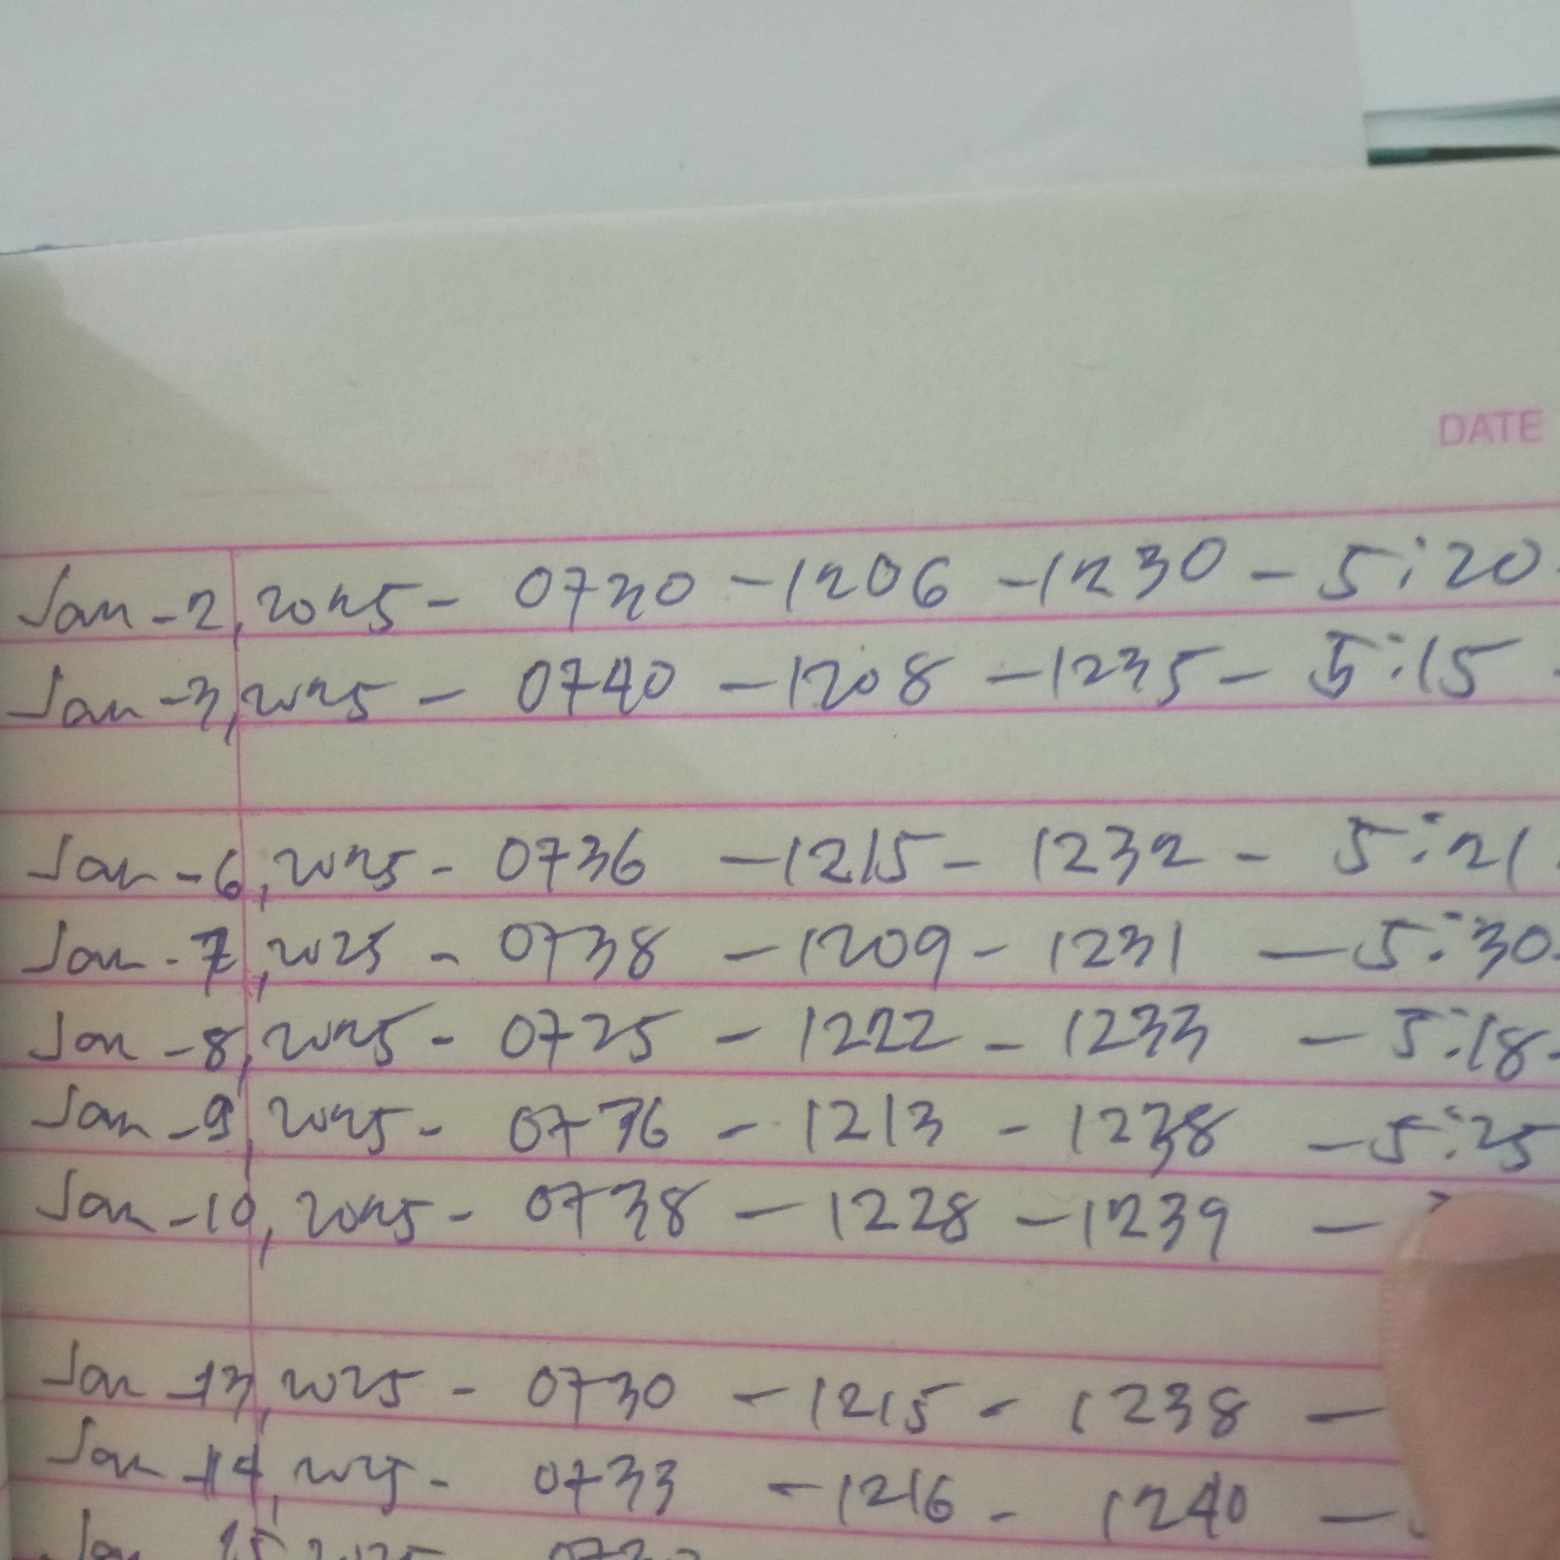 DATE
Jan-2, 2025- 0730 -1206 -1230 - 5:20
Jan-3, 2025 - 0740 -1208 -1235 - 5:15
Jan-6, 2025- 0736 -1215- 1232 - 5:21
Jan-7, 2025 - 0738 -1209- 1231 - 5:30
Jan-8, 2025- 0725 - 1222 - 1233 - 5:18
Jan-9, 2025- 0736 - 1213 - 1238 - 5:25
Jan-10, 2025- 0738 - 1228 -1239 -
Jan-13, 2025 - 0730 - 1215 - 1238 -
Jan-14, 2025- 0733 -1216- 1240 -
Jan 15, 2025